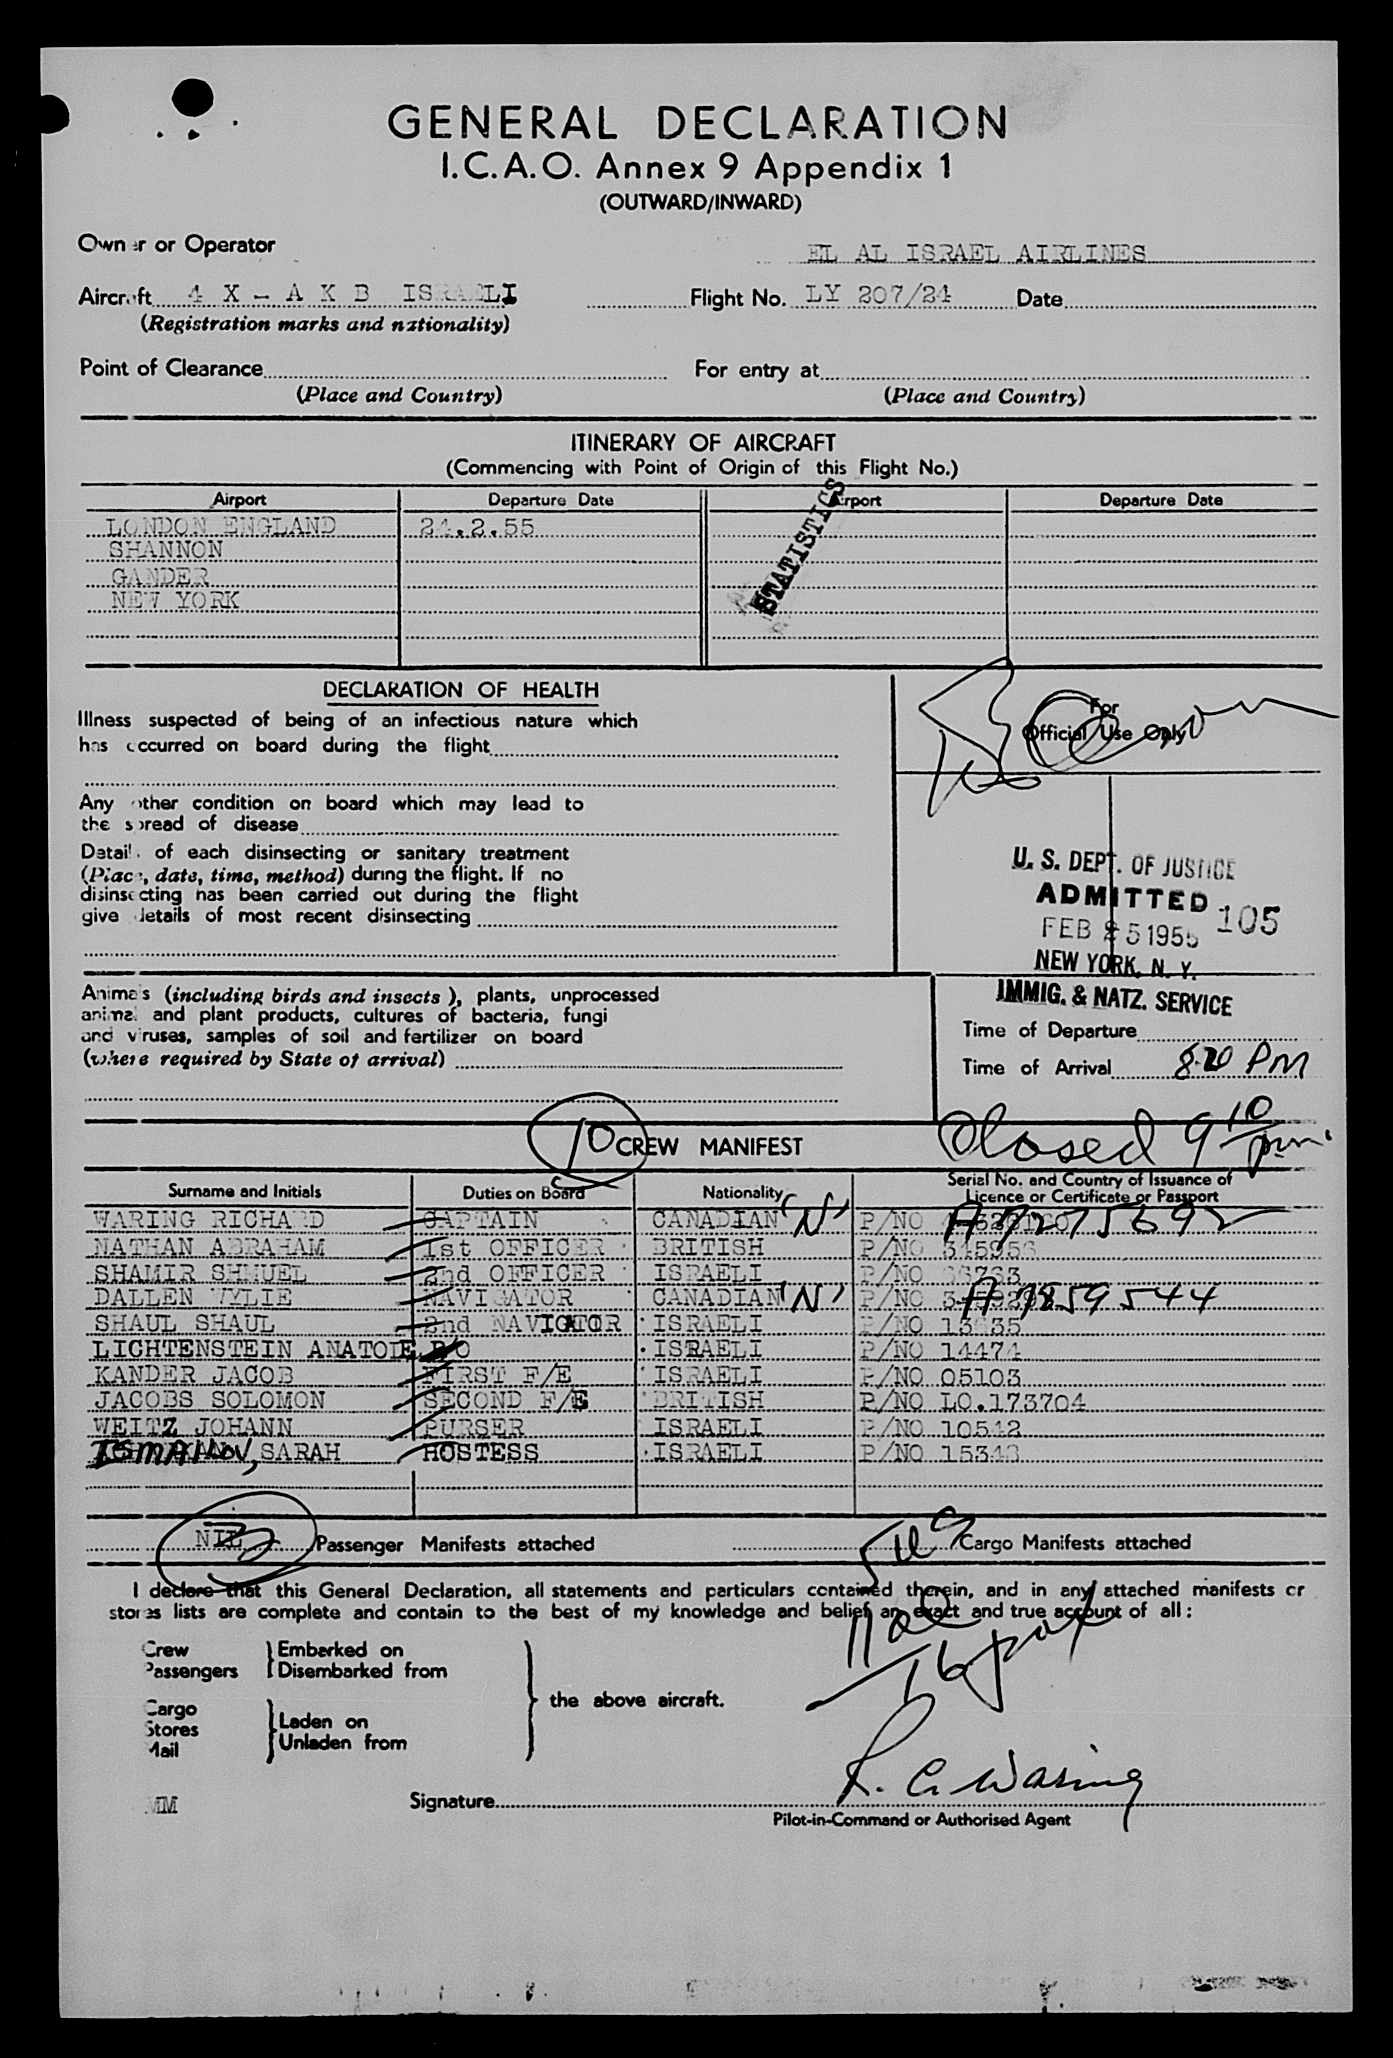 GENERAL DECLARATION
I.C.A.O. Annex 9 Appendix 1
(OUTWARD/INWARD)
Owner or Operator EL AL ISRAEL AIRLINES
Aircraft 4 X - A K B ISRAELI Flight No. LY 207/24 Date
(Registration marks and nationality)
Point of Clearance For entry at
(Place and Country) (Place and Country)
ITINERARY OF AIRCRAFT
(Commencing with Point of Origin of this Flight No.)
Airport Departure Date Airport Departure Date
LONDON ENGLAND 24.2.55
SHANNON
GANDER
NEW YORK
STATISTICS
DECLARATION OF HEALTH
Illness suspected of being of an infectious nature which
has occurred on board during the flight
Any other condition on board which may lead to
the spread of disease
Details of each disinsecting or sanitary treatment
(Place, date, time, method) during the flight. If no
disinsecting has been carried out during the flight
give details of most recent disinsecting
For
Official Use Only
U. S. DEPT. OF JUSTICE
ADMITTED 105
FEB 25 1955
NEW YORK, N. Y.
IMMIG. & NATZ. SERVICE
Animals (including birds and insects), plants, unprocessed
animal and plant products, cultures of bacteria, fungi
and viruses, samples of soil and fertilizer on board
(where required by State of arrival)
Time of Departure
Time of Arrival 8:20 PM
Closed 9 10 pm
10 CREW MANIFEST
Surname and Initials Duties on Board Nationality Serial No. and Country of Issuance of
Licence or Certificate or Passport
WARING RICHARD CAPTAIN CANADIAN "N" P/NO A 7275692
NATHAN ABRAHAM 1st OFFICER BRITISH P/NO
SHAMIR SHMUEL 2nd OFFICER ISRAELI P/NO
DALLEN WYLIE NAVIGATOR CANADIAN "N" P/NO A 7859544
SHAUL SHAUL 2nd NAVIGATOR ISRAELI P/NO
LICHTENSTEIN ANATOLE R/O ISRAELI P/NO 14474
KANDER JACOB FIRST F/E ISRAELI P/NO 05103
JACOBS SOLOMON SECOND F/E BRITISH P/NO LO.173704
WEITZ JOHANN PURSER ISRAELI P/NO 10542
ISMAILOV, SARAH HOSTESS ISRAELI P/NO 15348
NIL 3 Passenger Manifests attached Cargo Manifests attached
I declare that this General Declaration, all statements and particulars contained therein, and in any attached manifests or
stores lists are complete and contain to the best of my knowledge and belief an exact and true account of all:
Crew Embarked on
Passengers Disembarked from
the above aircraft.
Cargo
Stores Laden on
Mail Unladen from
5 US
11 al
16 pax
MM Signature R. C. Waring
Pilot-in-Command or Authorised Agent